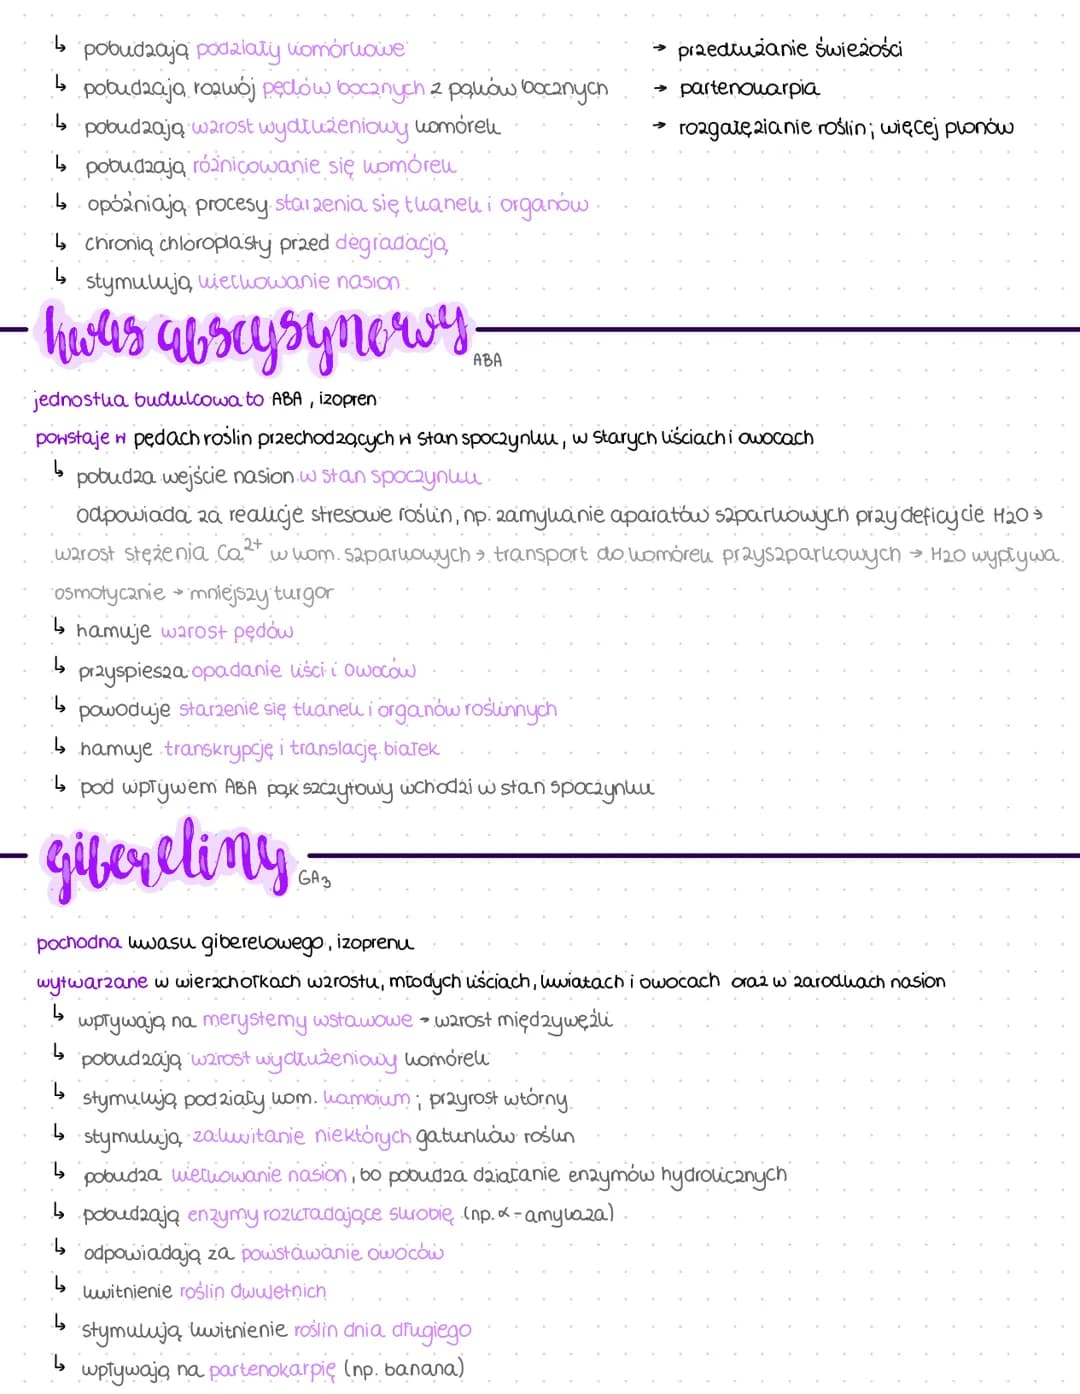 ↳ pobudzają podziały komórkowe
→ przedłużanie świeżości
↳ pobudzają rozwój pędów bocznych z pąków bocznych
→ partenokarpia
↳ pobudzają wzrost wydłużeniowy komórek
→ rozgałęzianie roślin; więcej plonów
↳ pobudzają różnicowanie się komórek
↳ opóźniają procesy starzenia się tkanek i organów
↳ chronią chloroplasty przed degradacją
↳ stymulują kiełkowanie nasion
kwas abscysynowy ABA
jednostka budulcowa to ABA, izopren
powstaje w pędach roślin przechodzących w stan spoczynku, w starych liściach i owocach
↳ pobudza wejście nasion w stan spoczynku
odpowiada za reakcje stresowe roślin, np. zamykanie aparatów szparkowych przy deficycie H2O →
wzrost stężenia Ca2+ w kom. szparkowych → transport do komórek przyszparkowych → H2O wypływa
osmotycznie → mniejszy turgor
↳ hamuje wzrost pędów
↳ przyspiesza opadanie liści i owoców
↳ powoduje starzenie się tkanek i organów roślinnych
↳ hamuje transkrypcję i translację białek
↳ pod wpływem ABA pąk szczytowy wchodzi w stan spoczynku
gibereliny GA3
pochodna kwasu giberelowego, izoprenu
wytwarzane w wierzchołkach wzrostu, młodych liściach, kwiatach i owocach oraz w zarodkach nasion
↳ wpływają na merystemy wstawowe → wzrost międzywęźli
↳ pobudzają wzrost wydłużeniowy komórek
↳ stymulują podziały kom. kambium; przyrost wtórny
↳ stymulują zakwitanie niektórych gatunków roślin
↳ pobudza kiełkowanie nasion, bo pobudza działanie enzymów hydrolicznych
↳ pobudzają enzymy rozkładające skrobię (np. α-amylaza)
↳ odpowiadają za powstawanie owoców
↳ kwitnienie roślin dwuletnich
↳ stymulują kwitnienie roślin dnia długiego
↳ wpływają na partenokarpię (np. banana)